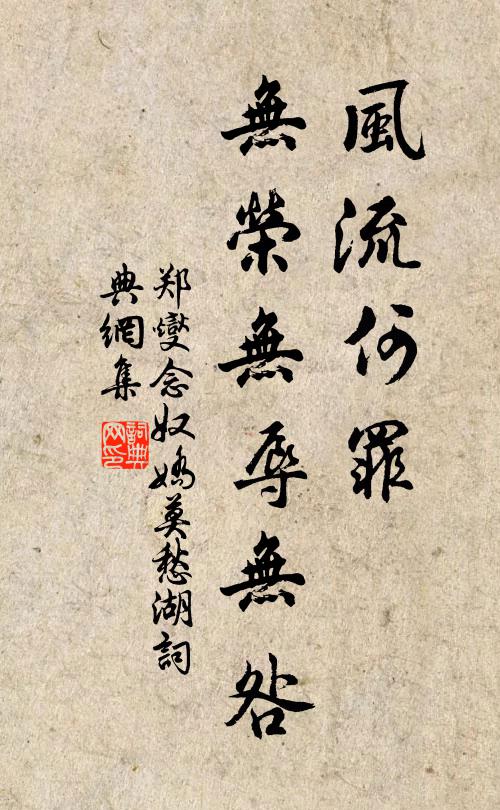 風流何罪
無榮無辱無咎
郑燮念奴嬌莫愁湖詞
典網集
詞典
网印